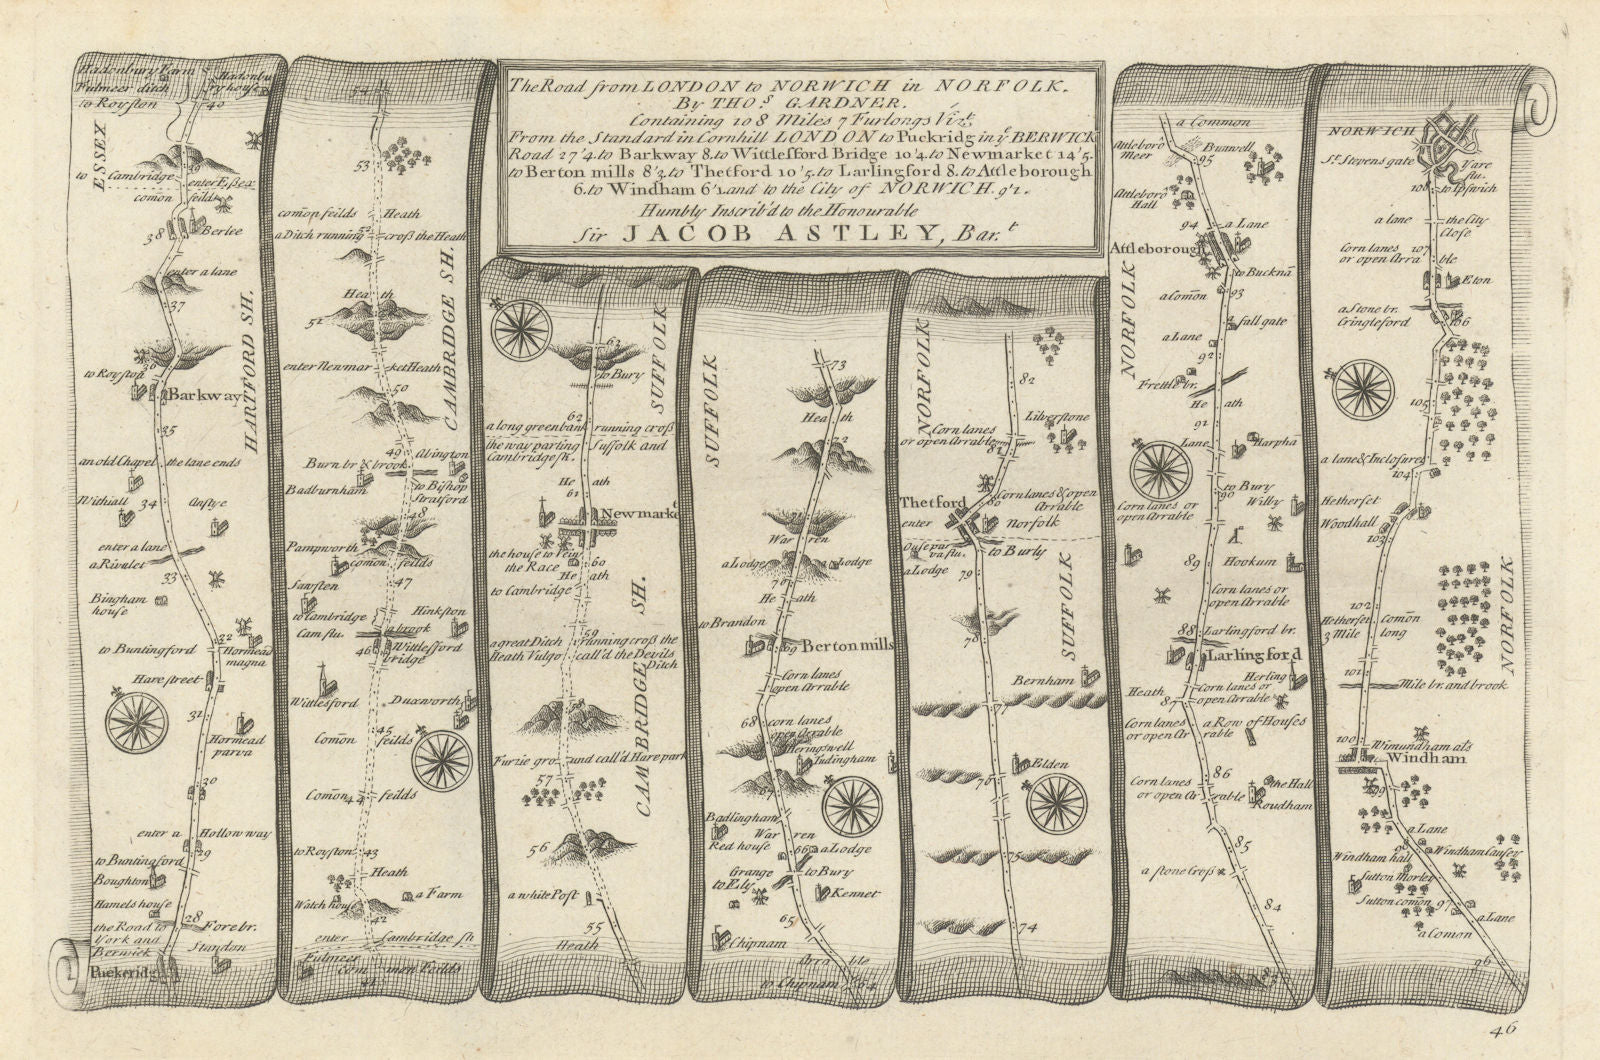 The Road from LONDON to NORWICH in NORFOLK.
By THO.s GARDNER.
Containing 108 Miles 7 Furlongs Vizt.
From the Standard in Cornhill LONDON to Puckridg in ye BERWICK
Road 27'4. to Barkway 8. to Wittlesford Bridge 10'4. to Newmarket 14'5.
to Berton mills 8'3. to Thetford 10'5. to Larlingford 8. to Attleborough
6. to Windham 6'1. and to the City of NORWICH. 9'1.
Humbly Inscrib'd to the Honourable
Sir JACOB ASTLEY, Bar.t
Hadonbury Farm
Hadonbu
ry house
Fulmeer ditch
to Royston
40
ESSEX
39
to Cambridge
enter Essex
comon feilds
38
Berlee
enter a lane
37
HARTFORD SH.
36
to Royston
Barkway
35
an old Chapel
the lane ends
Withiall
34
Anstye
enter a lane
a Rivulet
33
Bingham
house
32
to Buntingford
Hormead
magna
Hare street
31
Hormead
parva
30
enter a Hollow way
29
to Buntingford
Boughton
Hamels house
28
Fore br.
the Road to
York and
Berwick
Standon
Puckeridg
54
53
comon feilds
Heath
52
a Ditch running cross the Heath
CAMBRIDGE SH.
Heath
51
enter Newmarket Heath
50
49
Abington
Burn br & brook
Badburnham
to Bishop
Stratford
48
Pampworth
comon feilds
47
Sawsten
to Cambridge
Hinkston
Cam flu.
a brook
46
Wittlesford
bridge
Wittlesford
Duxworth
45
Comon feilds
44
Comon feilds
to Royston
43
Heath
Watch house
a Farm
42
enter Cambridge sh
Fulmeer
Common Feilds
41
63
to Bury
SUFFOLK
62
a long green bank running cross
the way parting Suffolk and
Cambridge sh.
Heath
61
Newmarket
the house to Vein
the Race
60
Heath
to Cambridge
CAMBRIDGE SH.
59
a great Ditch running cross the
Heath Vulgo call'd the Devils
Ditch
58
Furzie ground call'd Hare park
57
56
a white Post
55
Heath
SUFFOLK
73
Heath
72
71
Warren
a Lodge
a Lodge
70
Heath
to Brandon
69
Berton mills
Corn lanes
open Arrable
68
corn lanes
open Arrable
Heringswell
Tudingham
67
Badlingham
Warren
Red house
66
a Lodge
Grange
to Ely
to Bury
Kennet
65
Chipnam
Arrable
to Chipnam
64
NORFOLK
82
Lilverstone
Corn lanes
or open Arrable
81
Thetford
Corn lanes & open
Arrable
80
enter
Norfolk
Ouse par
va flu.
to Burly
a Lodge
79
SUFFOLK
78
Bernham
77
Elden
76
75
74
a Common
Attleboro
Meer
Bunwell
95
Attleboro
Hall
94
a Lane
Attleborough
to Bucknã
NORFOLK
a Comon
93
fall gate
a Lane
92
Frettle br.
Heath
91
Lane
Harphã
to Bury
90
Wilby
Corn lanes or
open Arrable
89
Hookum
Corn lanes or
open Arrable
88
Larlingford br.
Larlingford
Herling
Heath
Corn lanes or
open Arrable
87
Corn lanes
or open Ar
a Row of Houses
rable
86
the Hall
Corn lanes
or open Ar
rable
Roudham
85
a stone Cross
84
83
NORWICH
St. Stevens gate
Yare
flu.
108
to Ipswich
a lane
the City
Close
Corn lanes
or open Arra
107
ble
Eton
a Stone br.
Cringleford
106
105
a lane & Inclosures
104
Hetherset
Woodhall
103
NORFOLK
102
Hetherset comon
3 Mile long
101
Mile br. and brook
100
Wimundham als
Windham
99
a Lane
98
Windham hall
Windham Causey
Sutton Morley
Sutton comon
97
a Lane
a Comon
96
46